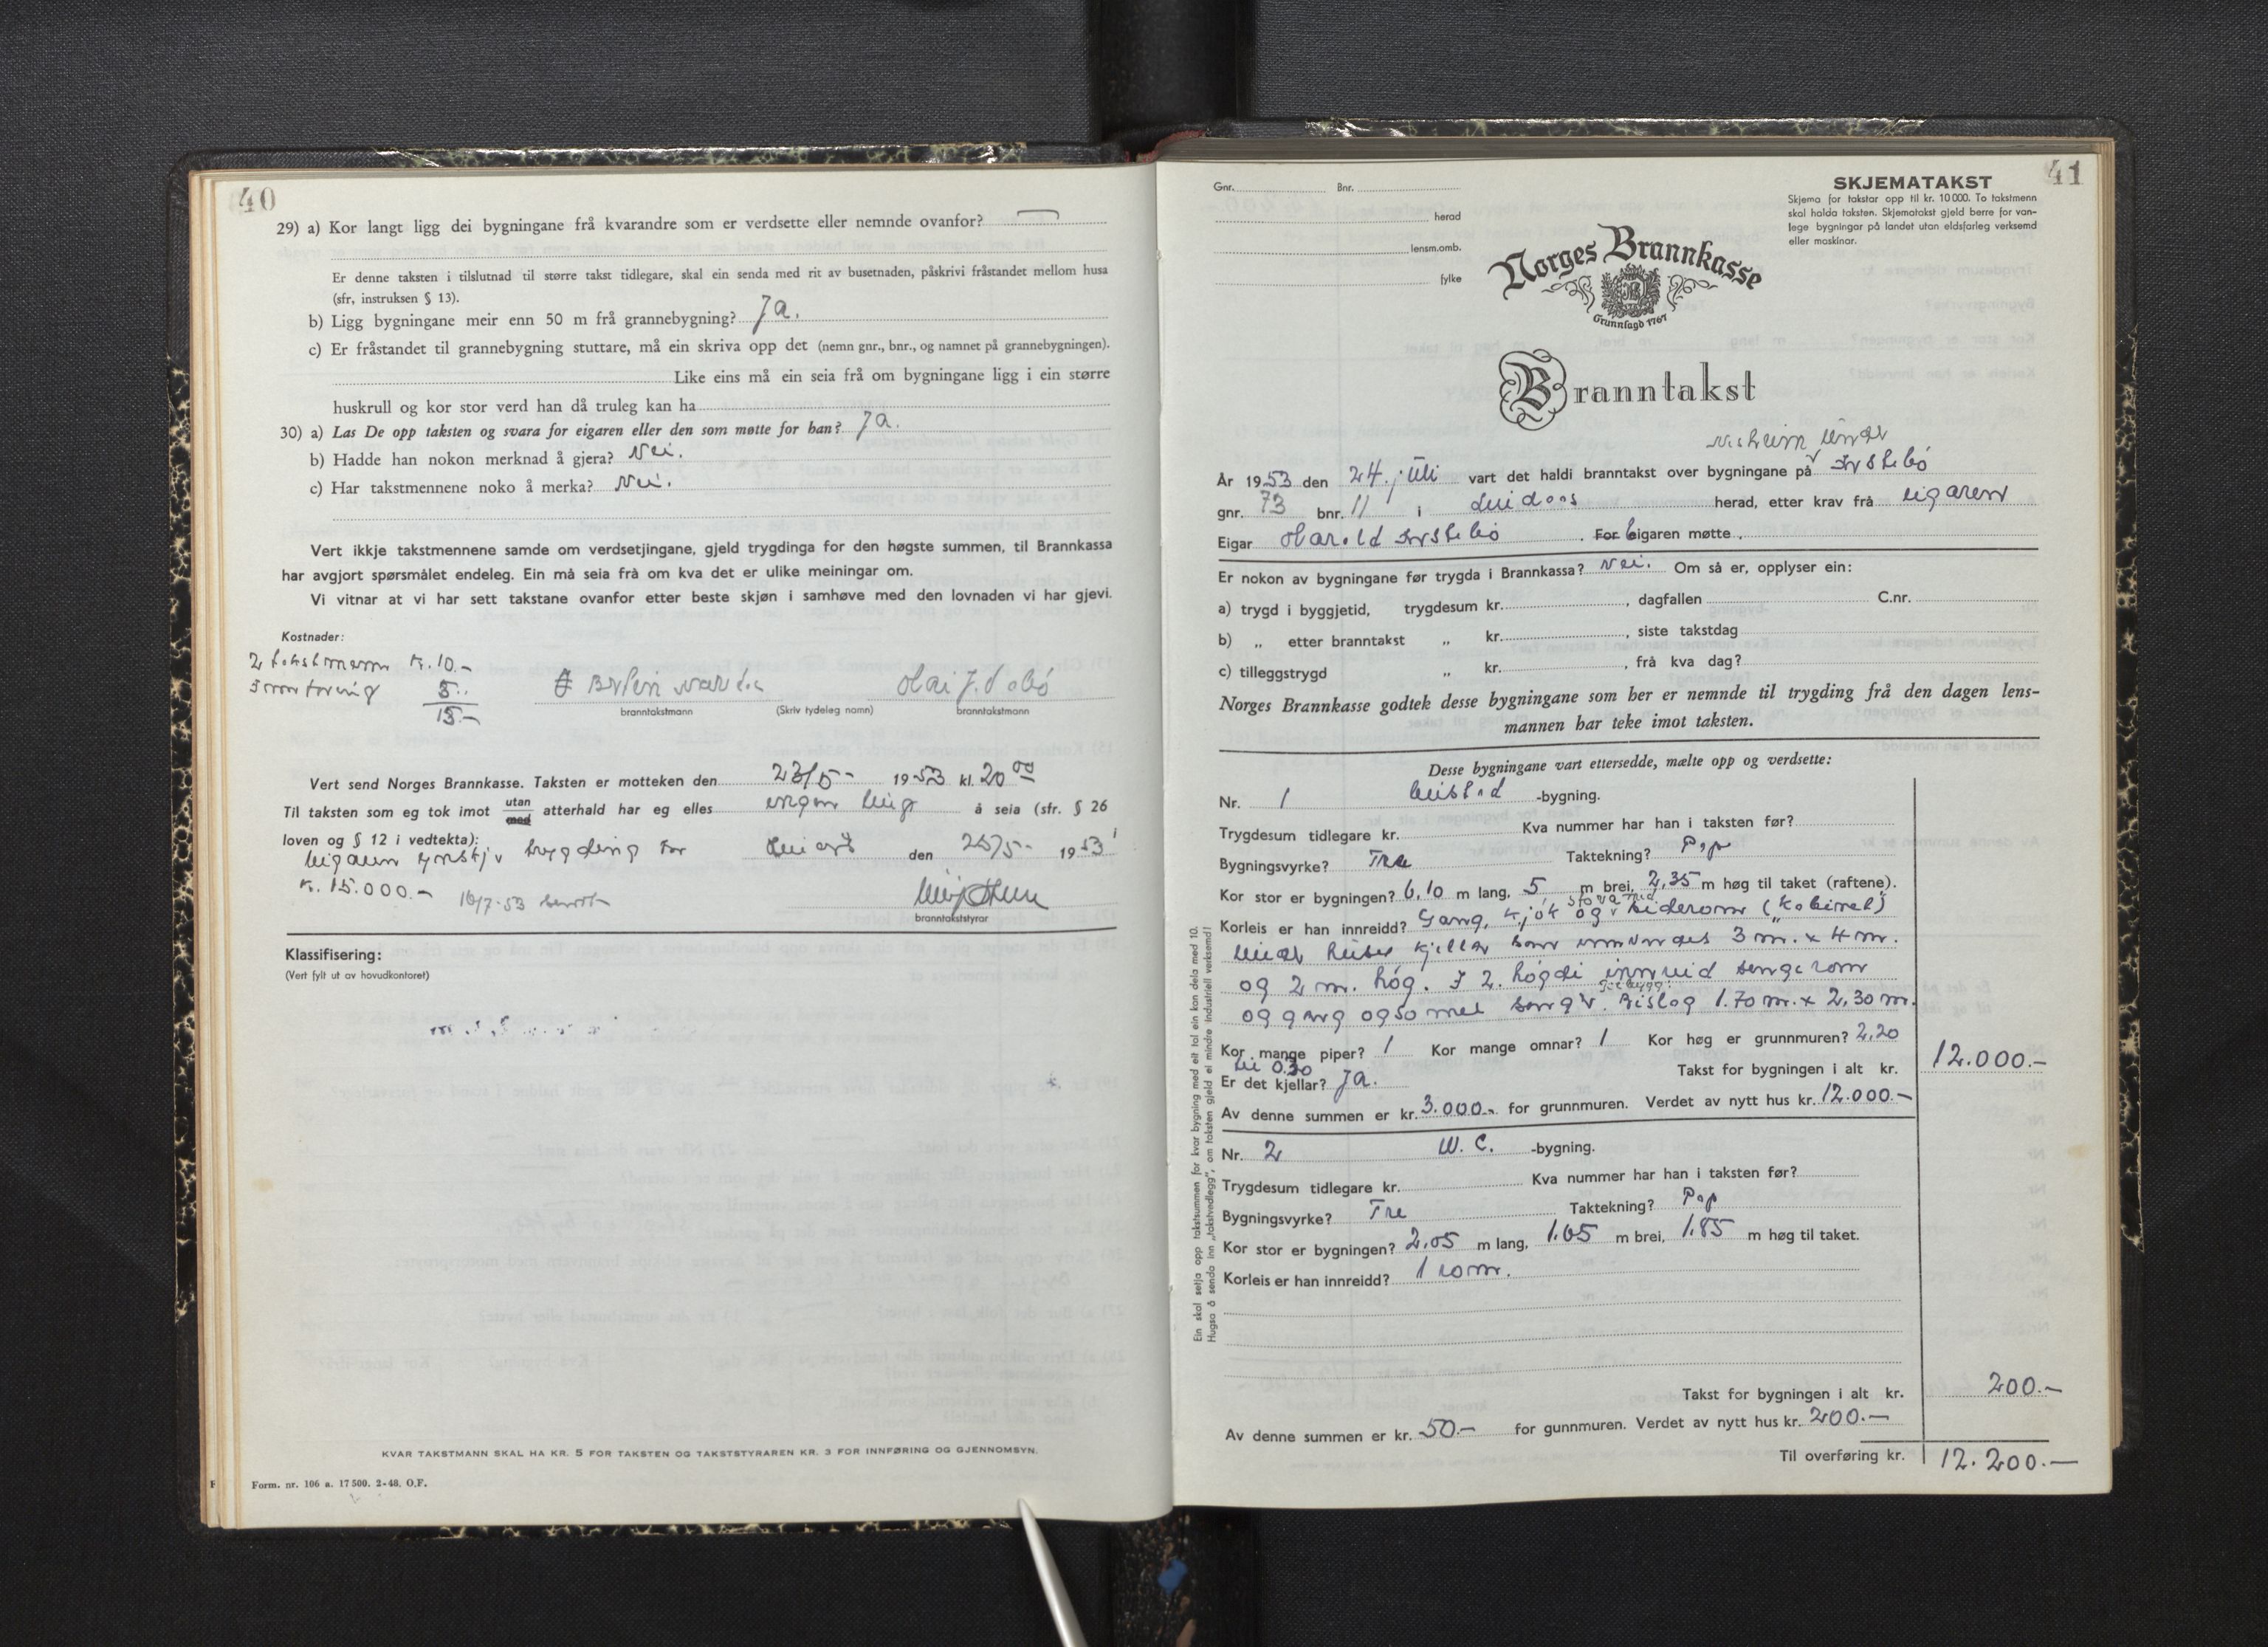 40
29) a) Kor langt ligg dei bygningane frå kvarandre som er verdsette eller nemnde ovanfor?
Er denne taksten i tilslutnad til større takst tidlegare, skal ein senda med rit av busetnaden, påskrivi fråstandet mellom husa
(sfr, instruksen § 13).
b) Ligg bygningane meir enn 50 m frå grannebygning? Ja.
c) Er fråstandet til grannebygning stuttare, må ein skriva opp det (nemn gnr., bnr., og namnet på grannebygningen).
Like eins må ein seia frå om bygningane ligg i ein større
huskrull og kor stor verd han då truleg kan ha
30) a) Las De opp taksten og svara for eigaren eller den som møtte for han? Ja.
b) Hadde han nokon merknad å gjera? Nei.
c) Har takstmennene noko å merka? Nei.
Vert ikkje takstmennene samde om verdsetjingane, gjeld trygdinga for den høgste summen, til Brannkassa
har avgjort spørsmålet endeleg. Ein må seia frå om kva det er ulike meiningar om.
Vi vitnar at vi har sett takstane ovanfor etter beste skjøn i samhøve med den lovnaden vi har gjevi.
Kostnader:
2 takstmenn kr. 10.-
Innføring 5..
15.-
branntakstmann (Skriv tydeleg namn) branntakstmann
Vert send Norges Brannkasse. Taksten er motteken den 23/5- 1953 kl. 20 00
Til taksten som eg tok imot utan med atterhald har eg elles ingen ting å seia (sfr. § 26
loven og § 12 i vedtekta):
Eigaren ynskjer trygding for den 25/5- 1953
kr. 15.000.- 16/7-53
branntakststyrar
Klassifisering:
(Vert fylt ut av hovudkontoret)
KVAR TAKSTMANN SKAL HA KR. 5 FOR TAKSTEN OG TAKSTSTYRAREN KR. 3 FOR INNFØRING OG GJENNOMSYN.
Form. nr. 106 a. 17 500. 2-48. O.F.
41
Gnr. Bnr.
herad
lensm.omb.
fylke
SKJEMATAKST
Skjema for takstar opp til kr. 10 000. To takstmenn
skal halda taksten. Skjematakst gjeld berre for van-
lege bygningar på landet utan eldsfarleg verksemd
eller maskinar.
Norges Brannkasse
Grunnlagd 1767
Branntakst
År 1953 den 24. juli vart det haldi branntakst over bygningane på
gnr. 73 bnr. 11 i Lindaas herad, etter krav frå eigaren
Eigar Harald . For Eigaren møtte.
Er nokon av bygningane før trygda i Brannkassa? Nei. Om så er, opplyser ein:
a) trygd i byggjetid, trygdesum kr. , dagfallen C.nr.
b) „ etter branntakst „ kr. , siste takstdag
c) tilleggstrygd „ kr. , frå kva dag?
Norges Brannkasse godtek desse bygningane som her er nemnde til trygding frå den dagen lens-
mannen har teke imot taksten.
Desse bygningane vart ettersedde, mælte opp og verdsette:
Nr. 1 Eistad -bygning.
Trygdesum tidlegare kr. Kva nummer har han i taksten før?
Bygningsvyrke? Tre Taktekning? Pap
Kor stor er bygningen? 6,10 m lang, 5 m brei, 2,35 m høg til taket (raftene).
stova med
Korleis er han innreidd? Gang, kjøk og siderom (kabinet)
Under huset kjellar som innvendes 3 m. x 4 m.
og 2 m. høg. I 2. høgdi innreid sengerom
og gang ogso med Bislag 1.70 m. x 2,30 m.
Kor mange piper? 1 Kor mange omnar? 1 Kor høg er grunnmuren? 2,20
til 0.30
Takst for bygningen i alt kr. 12.000.-
Er det kjellar? Ja.
Av denne summen er kr. 3.000.- for grunnmuren. Verdet av nytt hus kr. 12.000.-
Nr. 2 W. C. -bygning.
Trygdesum tidlegare kr. Kva nummer har han i taksten før?
Bygningsvyrke? Tre Taktekning? Pap
Kor stor er bygningen? 2,05 m lang, 1.65 m brei, 1.85 m høg til taket.
Korleis er han innreidd? 1 rom.
Takst for bygningen i alt kr. 200.-
Av denne summen er kr. 50.- for gunnmuren. Verdet av nytt hus kr. 200.-
Til overføring kr. 12.200.-
Ein skal setja opp takstsummen for kvar bygning med eit tal ein kan dela med 10.
Hugsa å senda inn „takstvedlegg", om taksten gjeld ei mindre industriell verksemd!